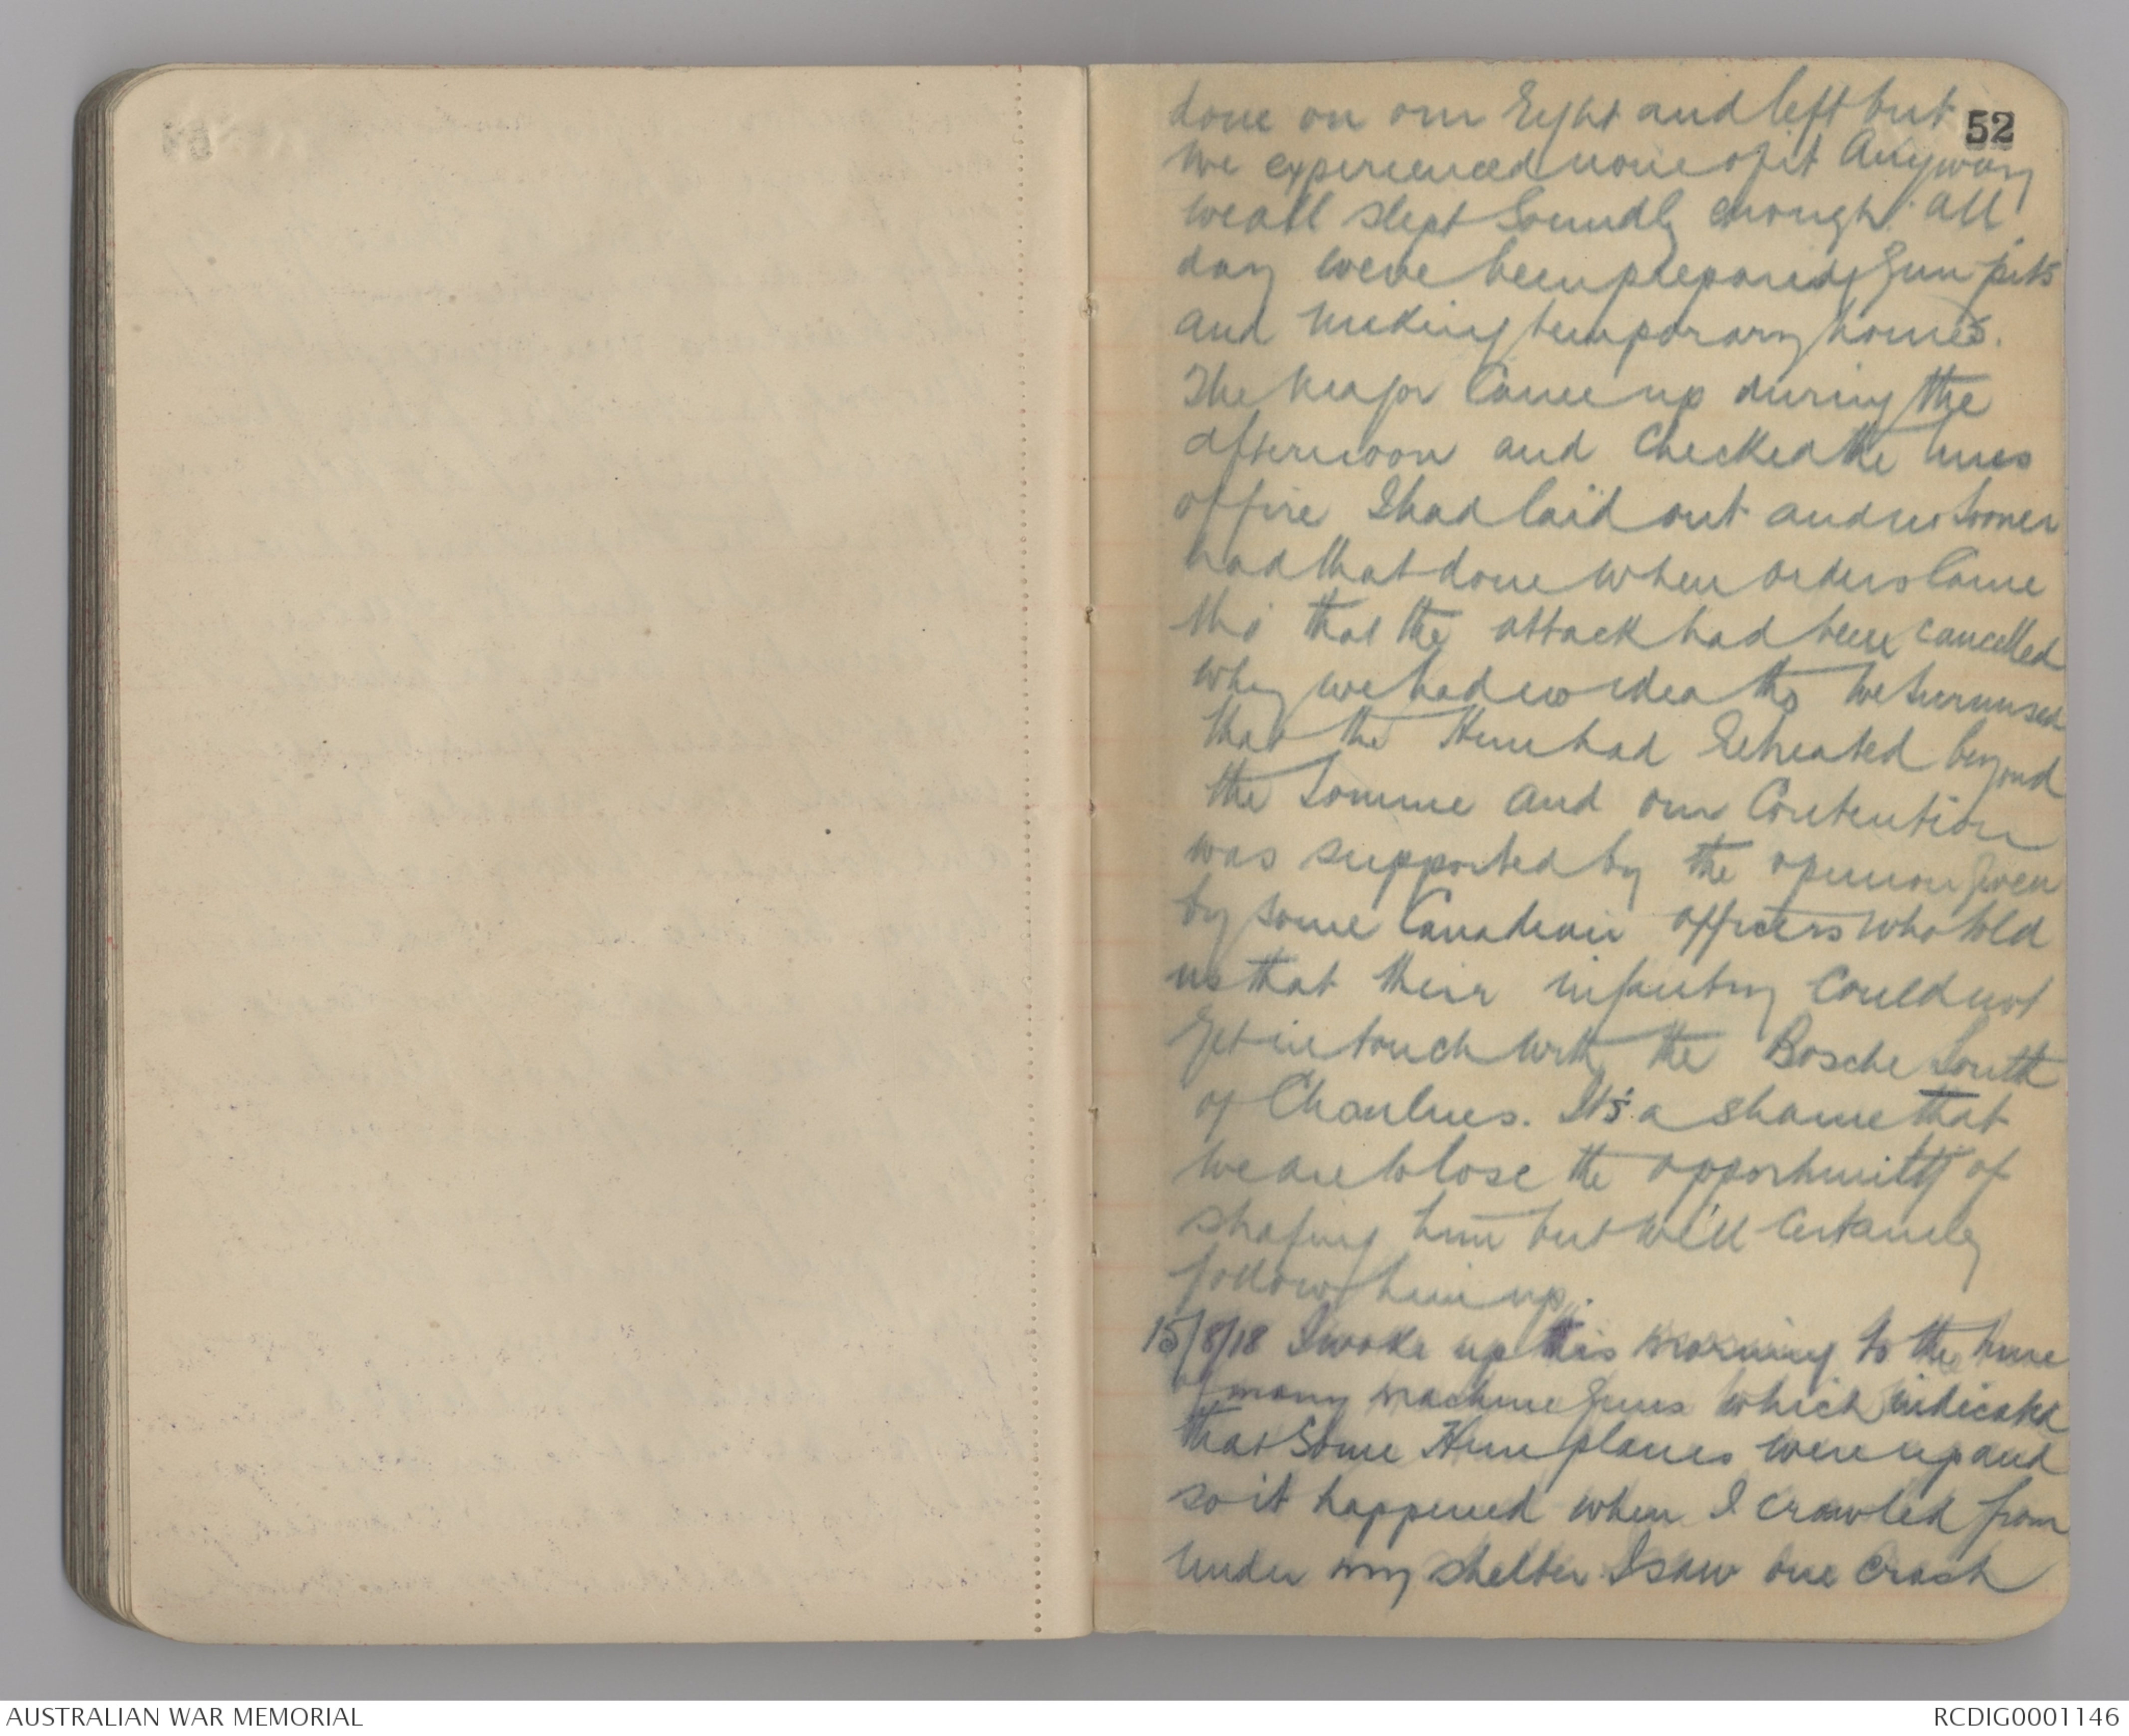 52
done on our right and left but
we experienced none of it Anyway
we all slept soundly enough. All
day weve been prepared gun pits
and making temporary homes.
The Major came up during the
afternoon and checked the lines
of fire I had laid out and no sooner
had that done when orders came
tho' that the attack had been cancelled
why we had no idea tho we surmised
that the Hun had retreated beyond
the Somme and our contention
was supported by the opinion given
by some Canadian officers who told
us that their infantry could not
get in touch with the Bosche South
of Chaulnes. It's a shame that
we are to lose the opportunity of
strafing him but we'll certainly
follow him up.
15/8/18 I woke up this morning to the tune
of many machine guns which indicated
that some Hun planes were up and
so it happened when I crawled from
under my shelter I saw one crash
AUSTRALIAN WAR MEMORIAL
RCDIG0001146